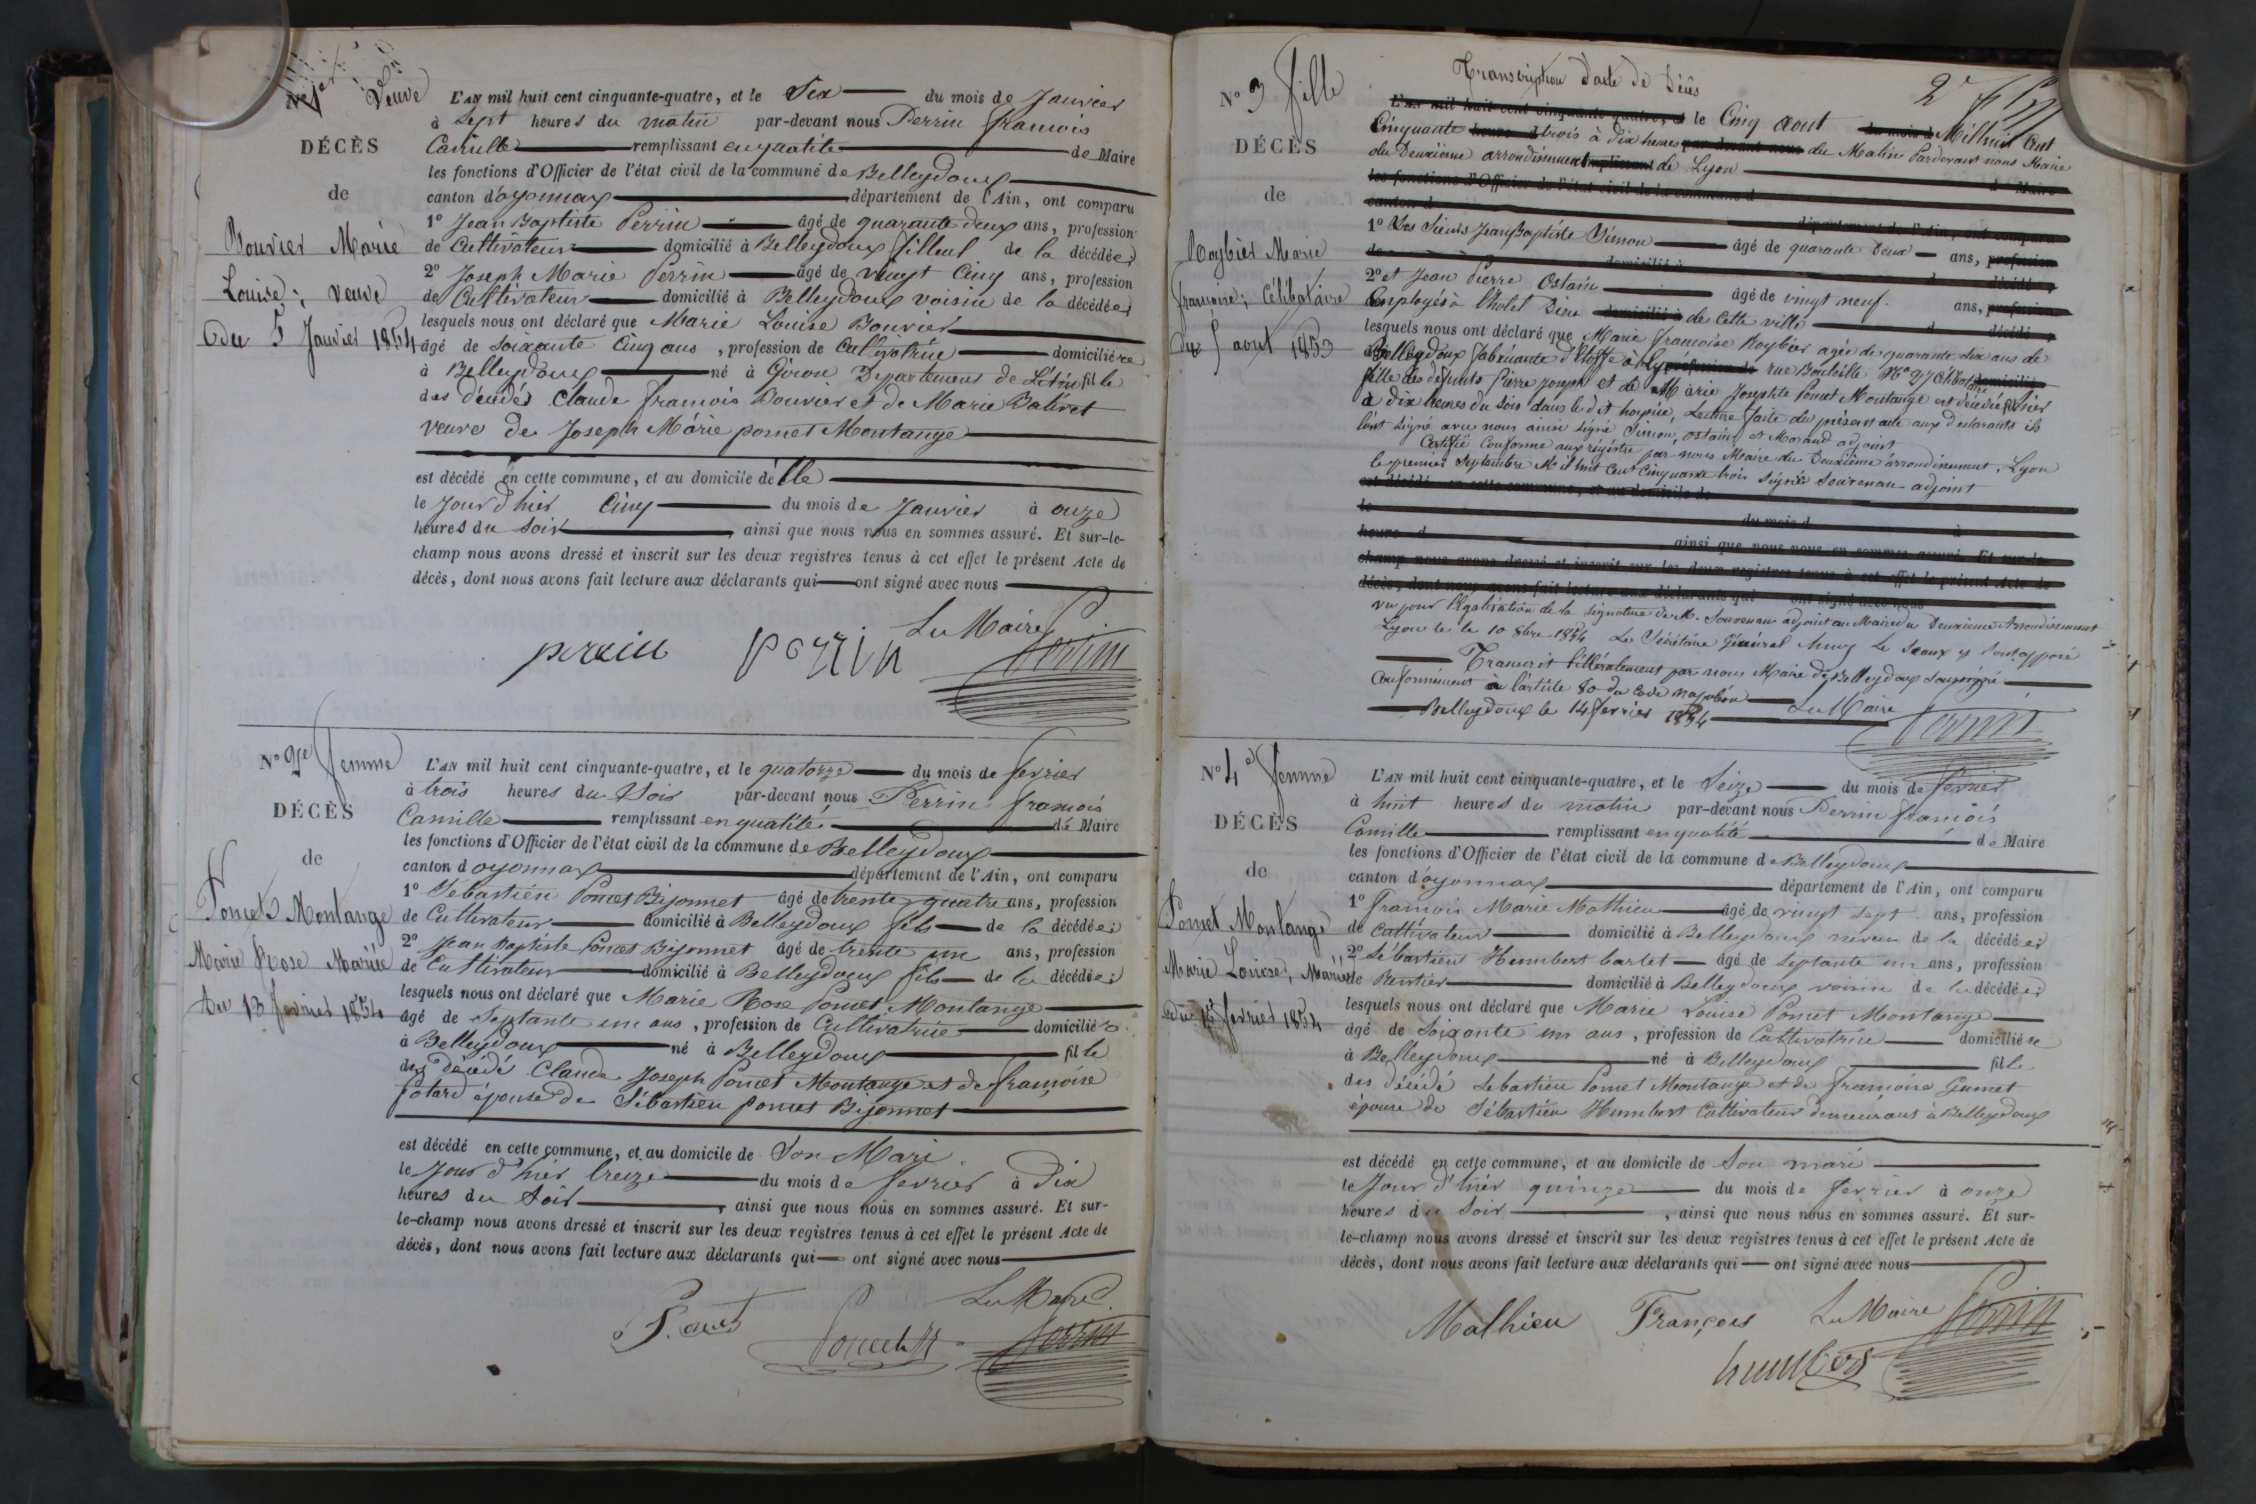 Veuve
L'AN mil huit cent cinquante-quatre, et le Six du mois de Janvier
à Sept heures du matin par-devant nous Perrin francois
DÉCÈS
Camille remplissant en qualité de Maire
les fonctions d'Officier de l'état civil de la commune de Belleydoux
de
canton d'oyonnax département de l'Ain, ont comparu
1° Jean Baptiste Perrin âgé de quarante deux ans, profession
Bouvier Marie
de Cultivateur domicilié à Belleydoux filleul de la décédée;
2° Joseph Marie Perrin âgé de vingt Cinq ans, profession
Louise; veuve
de Cultivateur domicilié à Belleydoux voisin de la décédée;
lesquels nous ont déclaré que Marie Louise Bouvier
du 5 Janvier 1854
âgé de soixante Cinq ans, profession de Cultivatrice domiciliée
à Belleydoux né à Giron Departement de L'Ain fille
des décédés Claude francois Bouvier et de Marie
veuve de Joseph Marie poncet Montange
est décédé en cette commune, et au domicile d'elle
le Jour d'hier Cinq du mois de Janvier à onze
heures du soir, ainsi que nous nous en sommes assuré. Et sur-le-
champ nous avons dressé et inscrit sur les deux registres tenus à cet effet le présent Acte de
décès, dont nous avons fait lecture aux déclarants qui ont signé avec nous
Le Maire
perrin perrin Perrin
N° 2e femme
L'AN mil huit cent cinquante-quatre, et le quatorze du mois de fevrier
à trois heures du Soir par-devant nous Perrin francois
DÉCÈS
Camille remplissant en qualité de Maire
les fonctions d'Officier de l'état civil de la commune de Belleydoux
de
canton d'oyonnax département de l'Ain, ont comparu
1° Sebastien Poncet Bijonnet âgé de trente quatre ans, profession
Poncet Montange
de Cultivateur domicilié à Belleydoux fils de la décédée;
2° Jean Baptiste Poncet Bijonnet âgé de trente un ans, profession
Marie Rose Mariée
de Cultivateur domicilié à Belleydoux fils de la décédée;
lesquels nous ont déclaré que Marie Rose Poncet Montange
du 13 fevrier 1854
âgé de Septante un ans, profession de Cultivatrice domiciliée
à Belleydoux né à Belleydoux fille
des décédé Claude Joseph Poncet Montange et de françoise
potard épouse de Sébastien poncet Bijonnet
est décédé en cette commune, et au domicile de Son Mari
le Jour d'hier treize du mois de fevrier à Dix
heures du Soir, ainsi que nous nous en sommes assuré. Et sur-
le-champ nous avons dressé et inscrit sur les deux registres tenus à cet effet le présent Acte de
décès, dont nous avons fait lecture aux déclarants qui ont signé avec nous
Le Maire
Perrin
N° 3 fille
Transcription d'acte de Décès
2e
L'AN mil huit cent cinquante-quatre, et le Cinq aout du mois d Mil huit Cent
Cinquante trois à dix heures par-devant nous du Matin Pardevant nous Maire
DÉCÈS
du Deuxième arrondissement de Lyon
les fonctions d'Officier de l'état civil de la commune d
de
canton d département de l'Ain, ont comparu
1° Les Sieurs Jean Baptiste Simon âgé de quarante Deux ans, profession
Roybier Marie
de domicilié à décédé;
2° et Jean Pierre Ostain âgé de vingt neuf ans, profession
françoise; Célibataire
Employés à l'hotel Dieu de Cette ville décédé;
lesquels nous ont déclaré que Marie francoise Roybier agée de quarante six ans de
du 5 aout 1853
Belleydoux fabricante d'étoffe à Lyon rue Bouteille N° 27 Célibataire
fille des défunts Pierre joseph et de Marie Josephte Poncet Montange est décédée hier
à dix heures du soir dans le dit hospice, Lecture faite du présent acte aux déclarants ils
l'ont signé avec nous ainsi signé Simon, ostain et Morand adjoint
Certifié Conforme aux régistre par nous Maire du Deuxième arrondissement, Lyon
le premier Septembre Mil huit Cent Cinquante trois Signé adjoint
est décédé en cette commune, et au domicile de
le du mois d à
heure d ainsi que nous nous en sommes assuré. Et sur-le-
champ nous avons dressé et inscrit sur les deux registres tenus à cet effet le présent Acte de
décès, dont nous avons fait lecture aux déclarants qui ont signé avec nous
vu pour légalisation de la signature de M. adjoint au Maire du Deuxieme Arrondissement
Lyon le le 10 8bre 1854 Le Sécrétaire Général Le Sceaux y est apposé
Transcrit littéralement par nous Maire de Belleydoux soussigné
Conformément à l'article 80 du Code napoléon
Belleydoux le 14 fevrier 1854 Le Maire
Perrin
N° 4e femme
L'AN mil huit cent cinquante-quatre, et le Seize du mois de fevrier
à huit heures du matin par-devant nous Perrin francois
DÉCÈS
Camille remplissant en qualité de Maire
les fonctions d'Officier de l'état civil de la commune de Belleydoux
de
canton d'oyonnax département de l'Ain, ont comparu
1° francois Marie Mathieu âgé de vingt sept ans, profession
Poncet Montange
de Cultivateur domicilié à Belleydoux neveu de la décédée;
2° Sébastien Humbert barlet âgé de septante un ans, profession
Marie Louise; Mariée
de Rentier domicilié à Belleydoux voisin de la décédée;
lesquels nous ont déclaré que Marie Louise Poncet Montange
du 15 fevrier 1854
âgé de Soixante un ans, profession de Cultivatrice domiciliée
à Belleydoux né à Belleydoux fille
des décédé Sebastien Poncet Montange et de françoise
épouse de Sébastien Humbert Cultivateur demeurant à Belleydoux
est décédé en cette commune, et au domicile de Son mari
le Jour d'hier quinze du mois de fevrier à onze
heures du Soir, ainsi que nous nous en sommes assuré. Et sur-
le-champ nous avons dressé et inscrit sur les deux registres tenus à cet effet le présent Acte de
décès, dont nous avons fait lecture aux déclarants qui ont signé avec nous
Mathieu François Le Maire Perrin
humbert